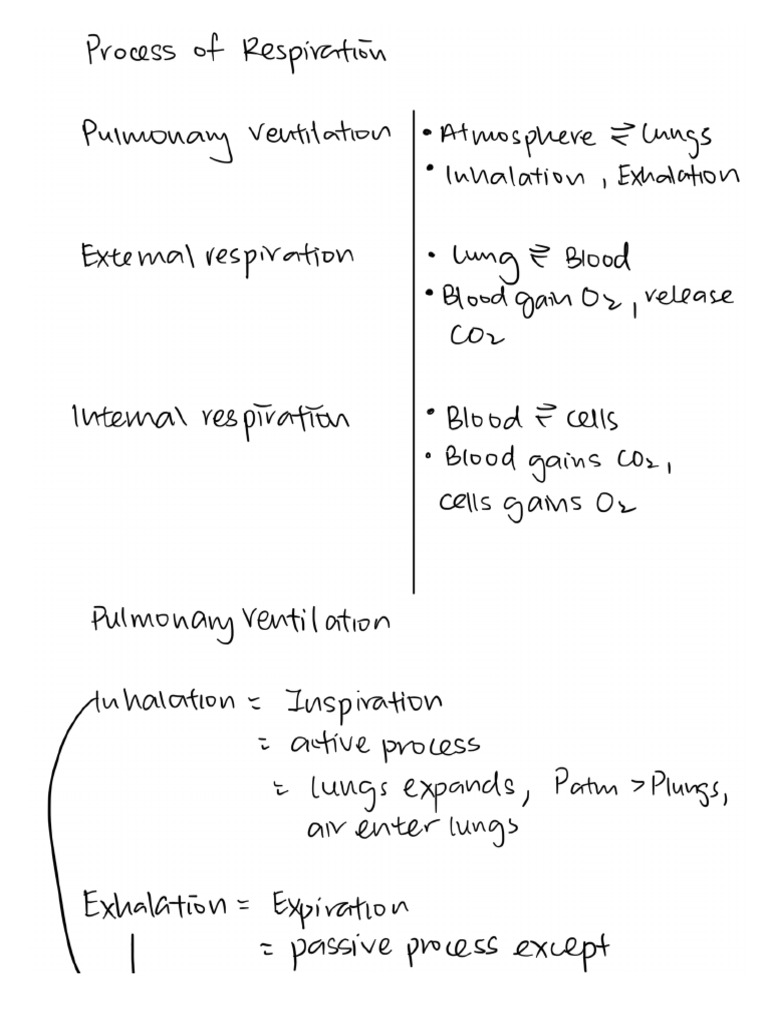 Process of Respiration
Pulmonary Ventilation
• Atmosphere ⇄ lungs
• Inhalation, Exhalation
External respiration
• Lung ⇄ Blood
• Blood gain O2, release
CO2
Internal respiration
• Blood ⇄ cells
• Blood gains CO2,
cells gains O2
Pulmonary Ventilation
Inhalation = Inspiration
= active process
= lungs expands, Patm > Plungs,
air enter lungs
Exhalation = Expiration
= passive process except